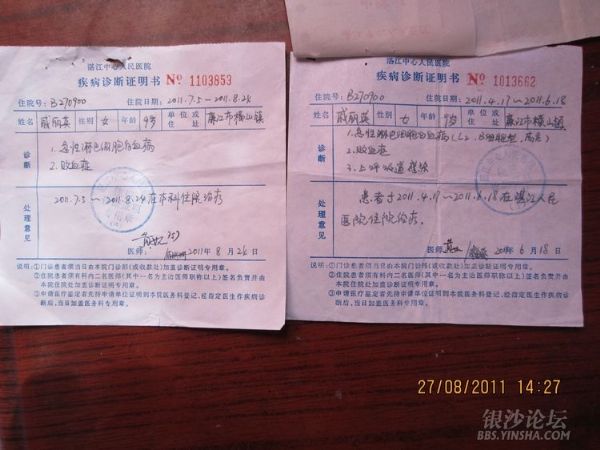 湛江中心人民医院
疾病诊断证明书 № 1103853
住院号：B270900 住院日期：2011.7.5～2011.8.24
姓名 戚丽英 女 年龄 9岁 单位或住址 廉江市横山镇
诊断
1.急性淋巴细胞白血病
2.败血症
处理意见
2011.7.5～2011.8.24在本科住院治疗
医师： 2011年8月24日
说明：①门诊患者须当日由本门诊部（或收款处）加盖诊断证明专用章。
②住院患者须有科内二名医师（其中一名为主治医师职称以上）签名负责并由
本院住院处加盖诊断证明专用章。
③申请医疗鉴定者先持申请单位证明到本院医务科登记，经指定医生作疾病诊
断后，当日加盖医务科专用章。
湛江中心人民医院
疾病诊断证明书 № 1013662
住院号：B270900 住院日期：2011.4.17～2011.6.18
姓名 戚丽英 女 年龄 9岁 单位或住址 廉江市横山镇
诊断
1.急性淋巴细胞白血病（L2，B细胞型，高危）
2.败血症
3.上呼吸道感染
处理意见
患者于2011.4.17～2011.6.18在湛江人民
医院住院治疗。
医师： 2011年6月18日
说明：①门诊患者须当日由本门诊部（或收款处）加盖诊断证明专用章。
②住院患者须有科内二名医师（其中一名为主治医师职称以上）签名负责并由
本院住院处加盖诊断证明专用章。
③申请医疗鉴定者先持申请单位证明到本院医务科登记，经指定医生作疾病诊
断后，当日加盖医务科专用章。
27/08/2011 14:27
银沙论坛
BBS.YINSHA.COM